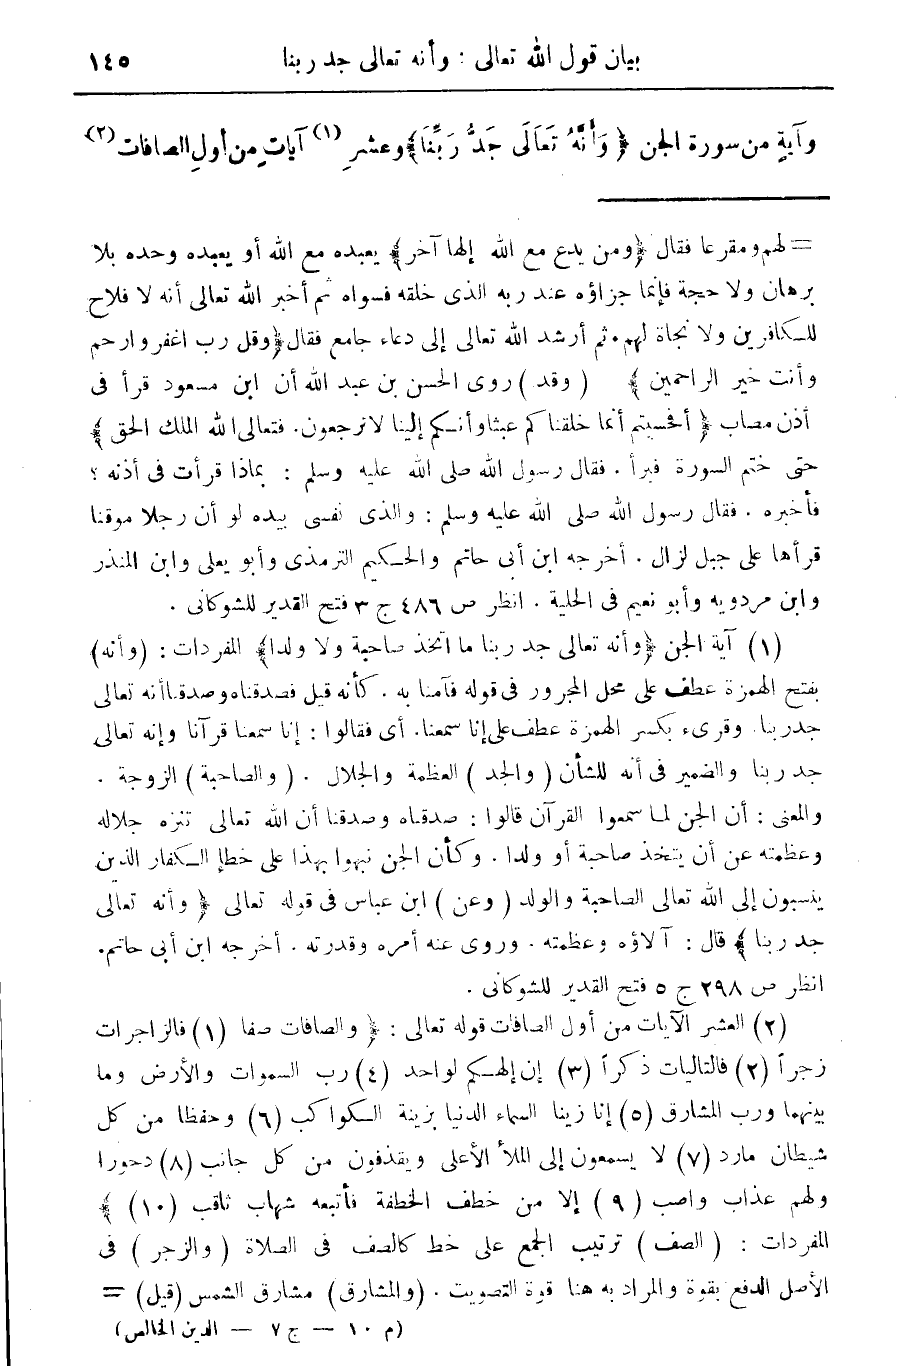 بيان قول الله تعالى : وأنه تعالى جد ربنا ١٤٥
وآيةٍ من سورة الجن ﴿ وَأَنَّهُ تَعَالَى جَدُّ رَبِّنَا﴾وعشرِ (١) آياتٍ من أولِ الصافات (٢)
= لهم ومقرعا فقال ﴿ومن يدع مع الله إلها آخر﴾ يعبده مع الله أو يعبده وحده بلا
برهان ولا حجة فإنما جزاؤه عند ربه الذى خلقه فسواه ثم أخبر الله تعالى أنه لا فلاح
للكافرين ولا نجاة لهم . ثم أرشد الله تعالى إلى دعاء جامع فقال ﴿وقل رب اغفر وارحم
وأنت خير الراحمين ﴾ ( وقد ) روى الحسن بن عبد الله أن ابن مسعود قرأ فى
أذن مصاب ﴿ أفحسبتم أنما خلقناكم عبثا وأنكم إلينا لا ترجعون. فتعالى الله الملك الحق ﴾
حتى ختم السورة فبرأ . فقال رسول الله صلى الله عليه وسلم : بماذا قرأت فى أذنه ؟
فأخبره . فقال رسول الله صلى الله عليه وسلم : والذى نفسى بيده لو أن رجلا موقنا
قرأها على جبل لزال . أخرجه ابن أبى حاتم والحكيم الترمذى وأبو يعلى وابن المنذر
وابن مردويه وأبو نعيم فى الحلية . انظر ص ٤٨٦ ج ٣ فتح القدير للشوكانى .
(١) آية الجن ﴿وأنه تعالى جد ربنا ما اتخذ صاحبة ولا ولدا﴾ المفردات : (وأنه)
بفتح الهمزة عطف على محل المجرور فى قوله فآمنا به . كأنه قيل فصدقناه وصدقنا أنه تعالى
جد ربنا. وقرىء بكسر الهمزة عطف على إنا سمعنا. أى فقالوا : إنا سمعنا قرآنا وإنه تعالى
جد ربنا والضمير فى أنه للشأن ( والجد ) العظمة والجلال . ( والصاحبة ) الزوجة .
والمعنى : أن الجن لما سمعوا القرآن قالوا : صدقناه وصدقنا أن الله تعالى تنزه جلاله
وعظمته عن أن يتخذ صاحبة أو ولدا . وكأن الجن نبهوا بهذا على خطإ الكفار الذين
ينسبون إلى الله تعالى الصاحبة والولد ( وعن ) ابن عباس فى قوله تعالى ﴿ وأنه تعالى
جد ربنا ﴾ قال : آلاؤه وعظمته . وروى عنه أمره وقدرته . أخرجه ابن أبى حاتم.
انظر ص ٢٩٨ ج ٥ فتح القدير للشوكانى .
(٢) العشر الآيات من أول الصافات قوله تعالى : ﴿ والصافات صفا (١) فالزاجرات
زجراً (٢) فالتاليات ذكراً (٣) إن إلهكم لواحد (٤) رب السموات والأرض وما
بينهما ورب المشارق (٥) إنا زينا السماء الدنيا بزينة الكواكب (٦) وحفظا من كل
شيطان مارد (٧) لا يسمعون إلى الملأ الأعلى ويقذفون من كل جانب (٨) دحورا
ولهم عذاب واصب (٩) إلا من خطف الخطفة فأتبعه شهاب ثاقب (١٠) ﴾
المفردات : ( الصف ) ترتيب الجمع على خط كالصف فى الصلاة ( والزجر ) فى
الأصل الدفع بقوة والمراد به هنا قوة التصويت . (والمشارق) مشارق الشمس (قيل) =
(م ١٠ — ج ٧ — الدين الخالص)